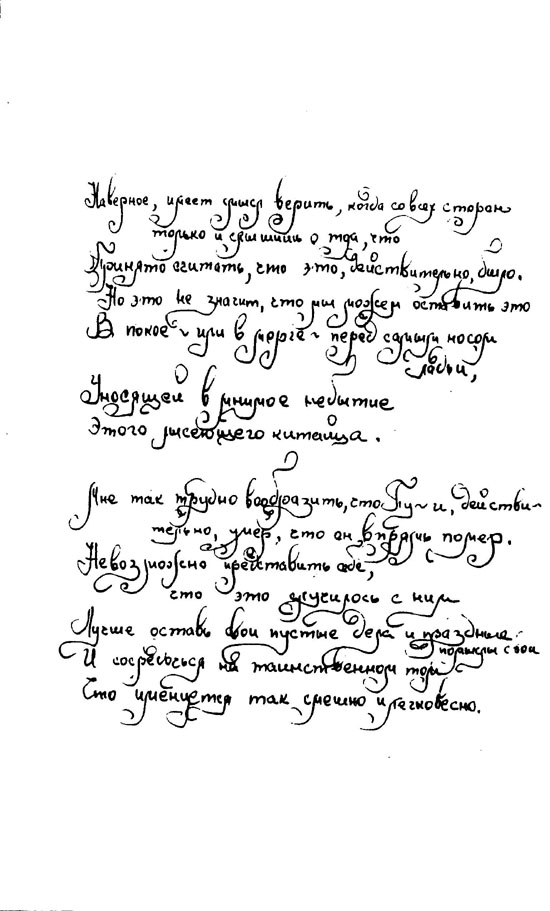 Наверное, имеет смысл верить, когда со всех сторон
только и слышишь о том, что
Принято считать, что это, действительно, было.
Но это не значит, что мы можем оставить это
В покое ~ или в морге ~ перед самым носом
ладьи,
Уносящей в мнимое небытие
Этого лысеющего китайца.
Мне так трудно вообразить, что Пу~и, действи-
тельно, умер, что он впрямь помер.
Невозможно представить себе,
что это случилось с ним
Лучше оставь свои пустые дела и праздные
порывы свои
И сосредоться на таинственном том
Что именуется так смешно и легковесно.